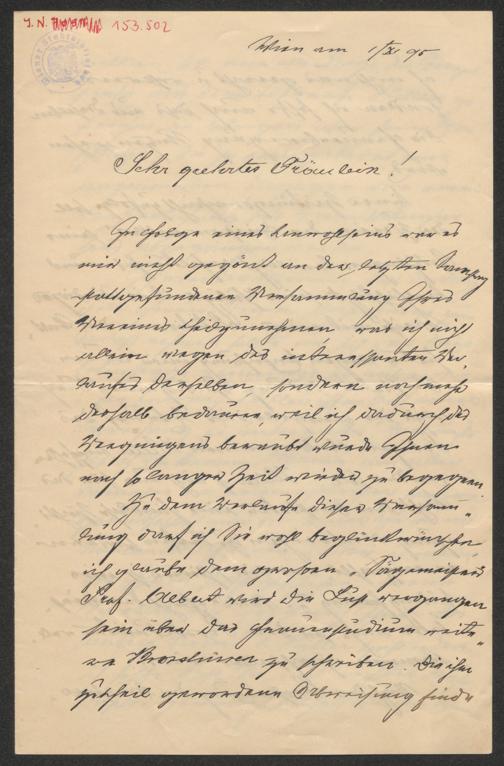 J. N. 153.502
Wien am 1/XI 95
Sehr geehrtes Fräulein!
In Folge eines Unwohlseins war es
mir nicht gegönt an der letzten Samstag
stattgefundenen Versammlung Ihres
Vereines theilzunehmen, was ich nicht
allein wegen des interessanten Ver-
laufes derselben, sondern noch mehr
deshalb bedauere, weil ich dadurch des
Vergnügens beraubt wurde Ihnen
nach so langer Zeit wieder zu begegnen.
Zu dem Verlaufe dieser Versamm-
lung darf ich Sie wohl beglückwünschen,
ich glaube dem
Prof. Albert wird die Lust vergangen
sein über das Frauenstudium weite-
re Broschüren zu schreiben. Die ihm
zutheil gewordene finde